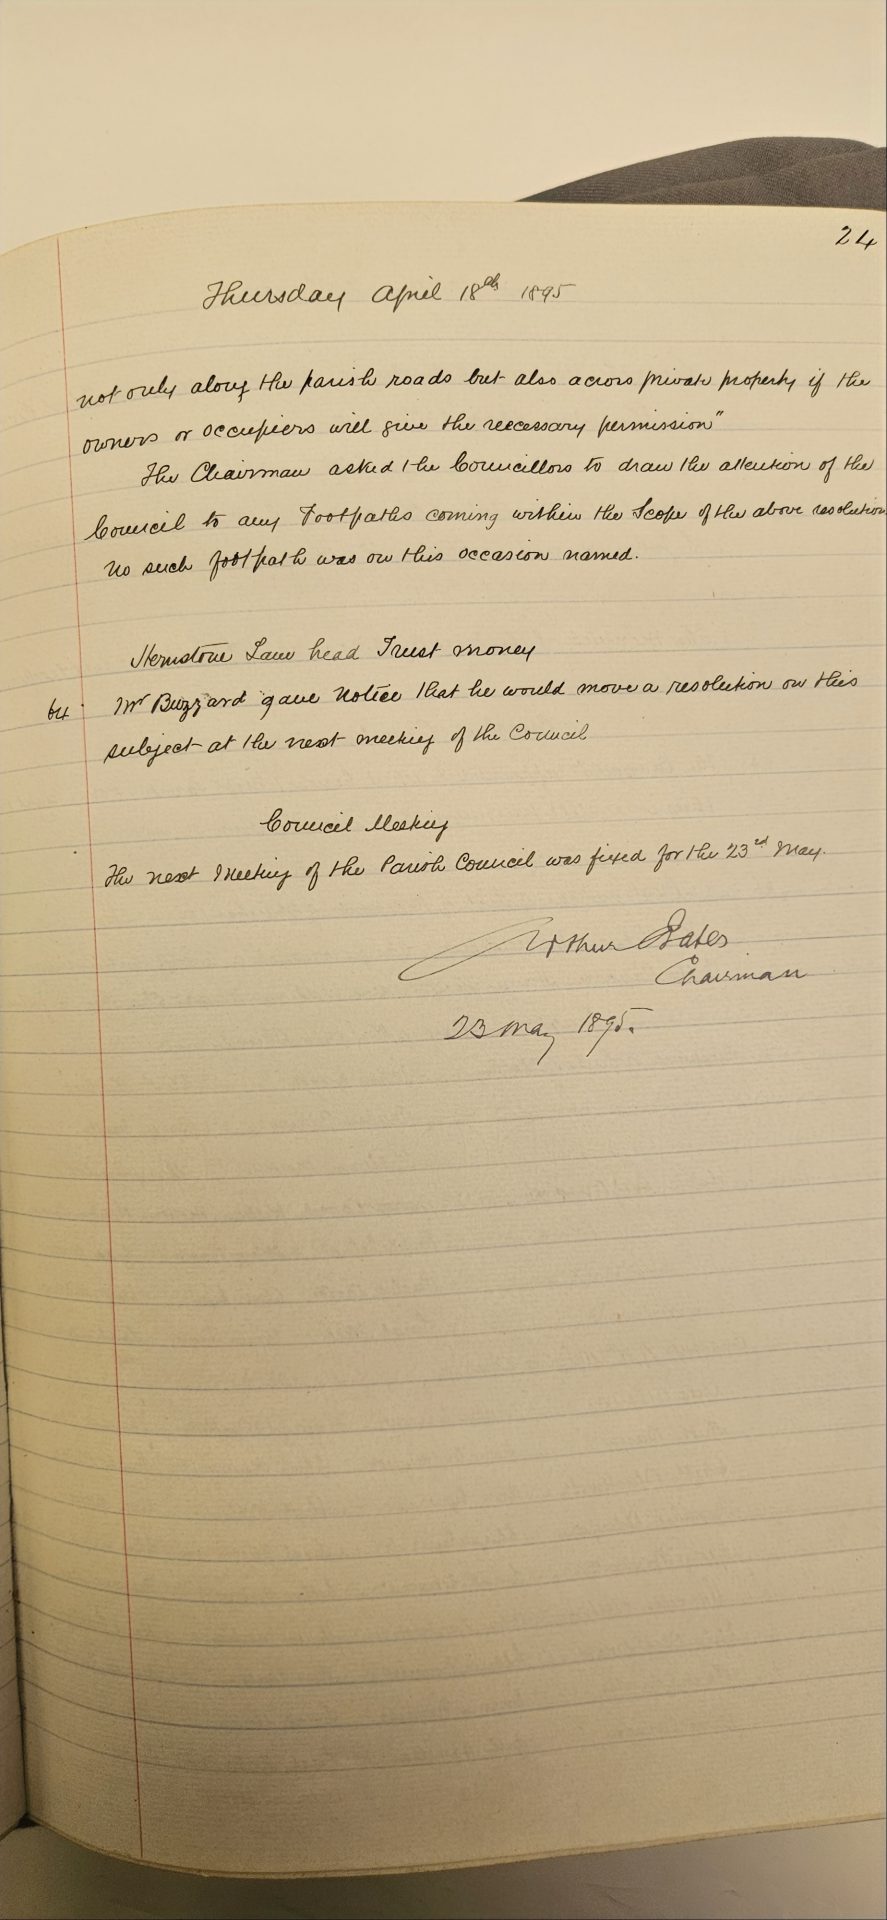 24
Thursday April 18th 1895
not only along the parish roads but also across private property if the
owners or occupiers will give the necessary permission"
The Chairman asked the Councillors to draw the attention of the
Council to any Footpaths coming within the Scope of the above resolution
No such footpath was on this occasion named.
Hernstone Law head Trust money
64 Mr Buzzard gave Notice that he would move a resolution on this
subject at the next meeting of the Council
Council Meeting
The next Meeting of the Parish Council was fixed for the 23rd May.
Arthur Bates
Chairman
23 May 1895.